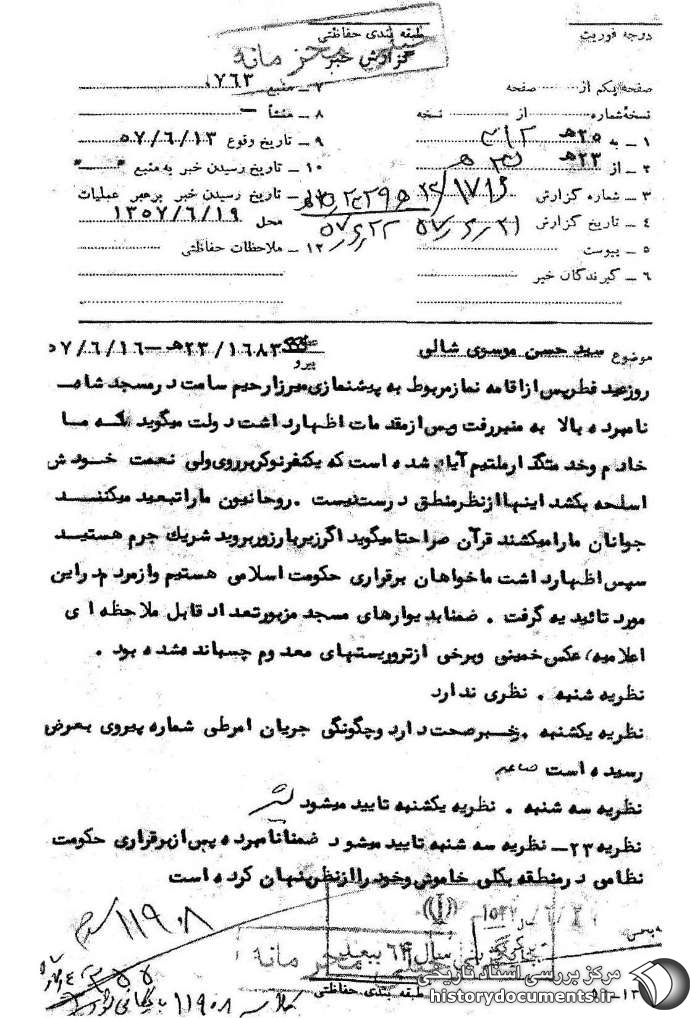 درجه فوریت
طبقه بندی حفاظتی
خیلی محرمانه
گزارش خبر
صفحه یکم از صفحه
نسخه شماره از نسخه
۱ ـ به ۲۵هـ
۲ ـ از ۲۳هـ
۳ ـ شماره گزارش
۴ ـ تاریخ گزارش
۵ ـ پیوست
۶ ـ گیرندگان خبر
۷ ـ منبع ۷۶۳
۸ ـ منشأ ـ
۹ ـ تاریخ وقوع ۵۷/۶/۱۳
۱۰ ـ تاریخ رسیدن خبر به منبع " "
تاریخ رسیدن خبر برهبر عملیات
محل ۱۳۵۷/۶/۱۹
۱۲ ـ ملاحظات حفاظتی
موضوع سید حسن موسوی شالی
پیرو ۲۳/۱۶۸۳هـ ـ ۵۷/۶/۱۶
روز عید فطر پس از اقامه نماز مربوط به پیشنمازی میرزا رحیم سامت در مسجد شاه
نامبرده بالا به منبر رفت و پس از مقدمات اظهار داشت دولت میگوید که ما
خادم و خدمتگذار ملتیم آیا شده است که یکنفر نوکر بر روی ولی نعمت خودش
اسلحه بکشد اینها از نظر منطق درست نیست . روحانیون ما را تبعید میکنند
جوانان ما را میکشند قرآن صراحتا میگوید اگر زیر بار زور بروید شریک جرم هستید
سپس اظهار داشت ما خواهان برقراری حکومت اسلامی هستیم و از مردم در این
مورد تائیدیه گرفت . ضمنا بدیوارهای مسجد مزبور تعداد قابل ملاحظه ای
اعلامیه، عکس خمینی و برخی از تروریستهای معدوم چسبانده شده بود .
نظریه شنبه . نظری ندارد
نظریه یکشنبه . خبر صحت دارد و چگونگی جریان امر طی شماره پیروی بعرض
رسیده است
نظریه سه شنبه . نظریه یکشنبه تایید میشود
نظریه ۲۳ـ نظریه سه شنبه تایید میشود ضمنا نامبرده پس از برقراری حکومت
نظامی در منطقه بکلی خاموش و خود را از نظر پنهان کرده است
۱۱۹۰۸
سال
خیلی محرمانه
طبقه بندی حفاظتی
۱۱۹۰۸ بایگانی
مرکز بررسی اسناد تاریخی
historydocuments.ir